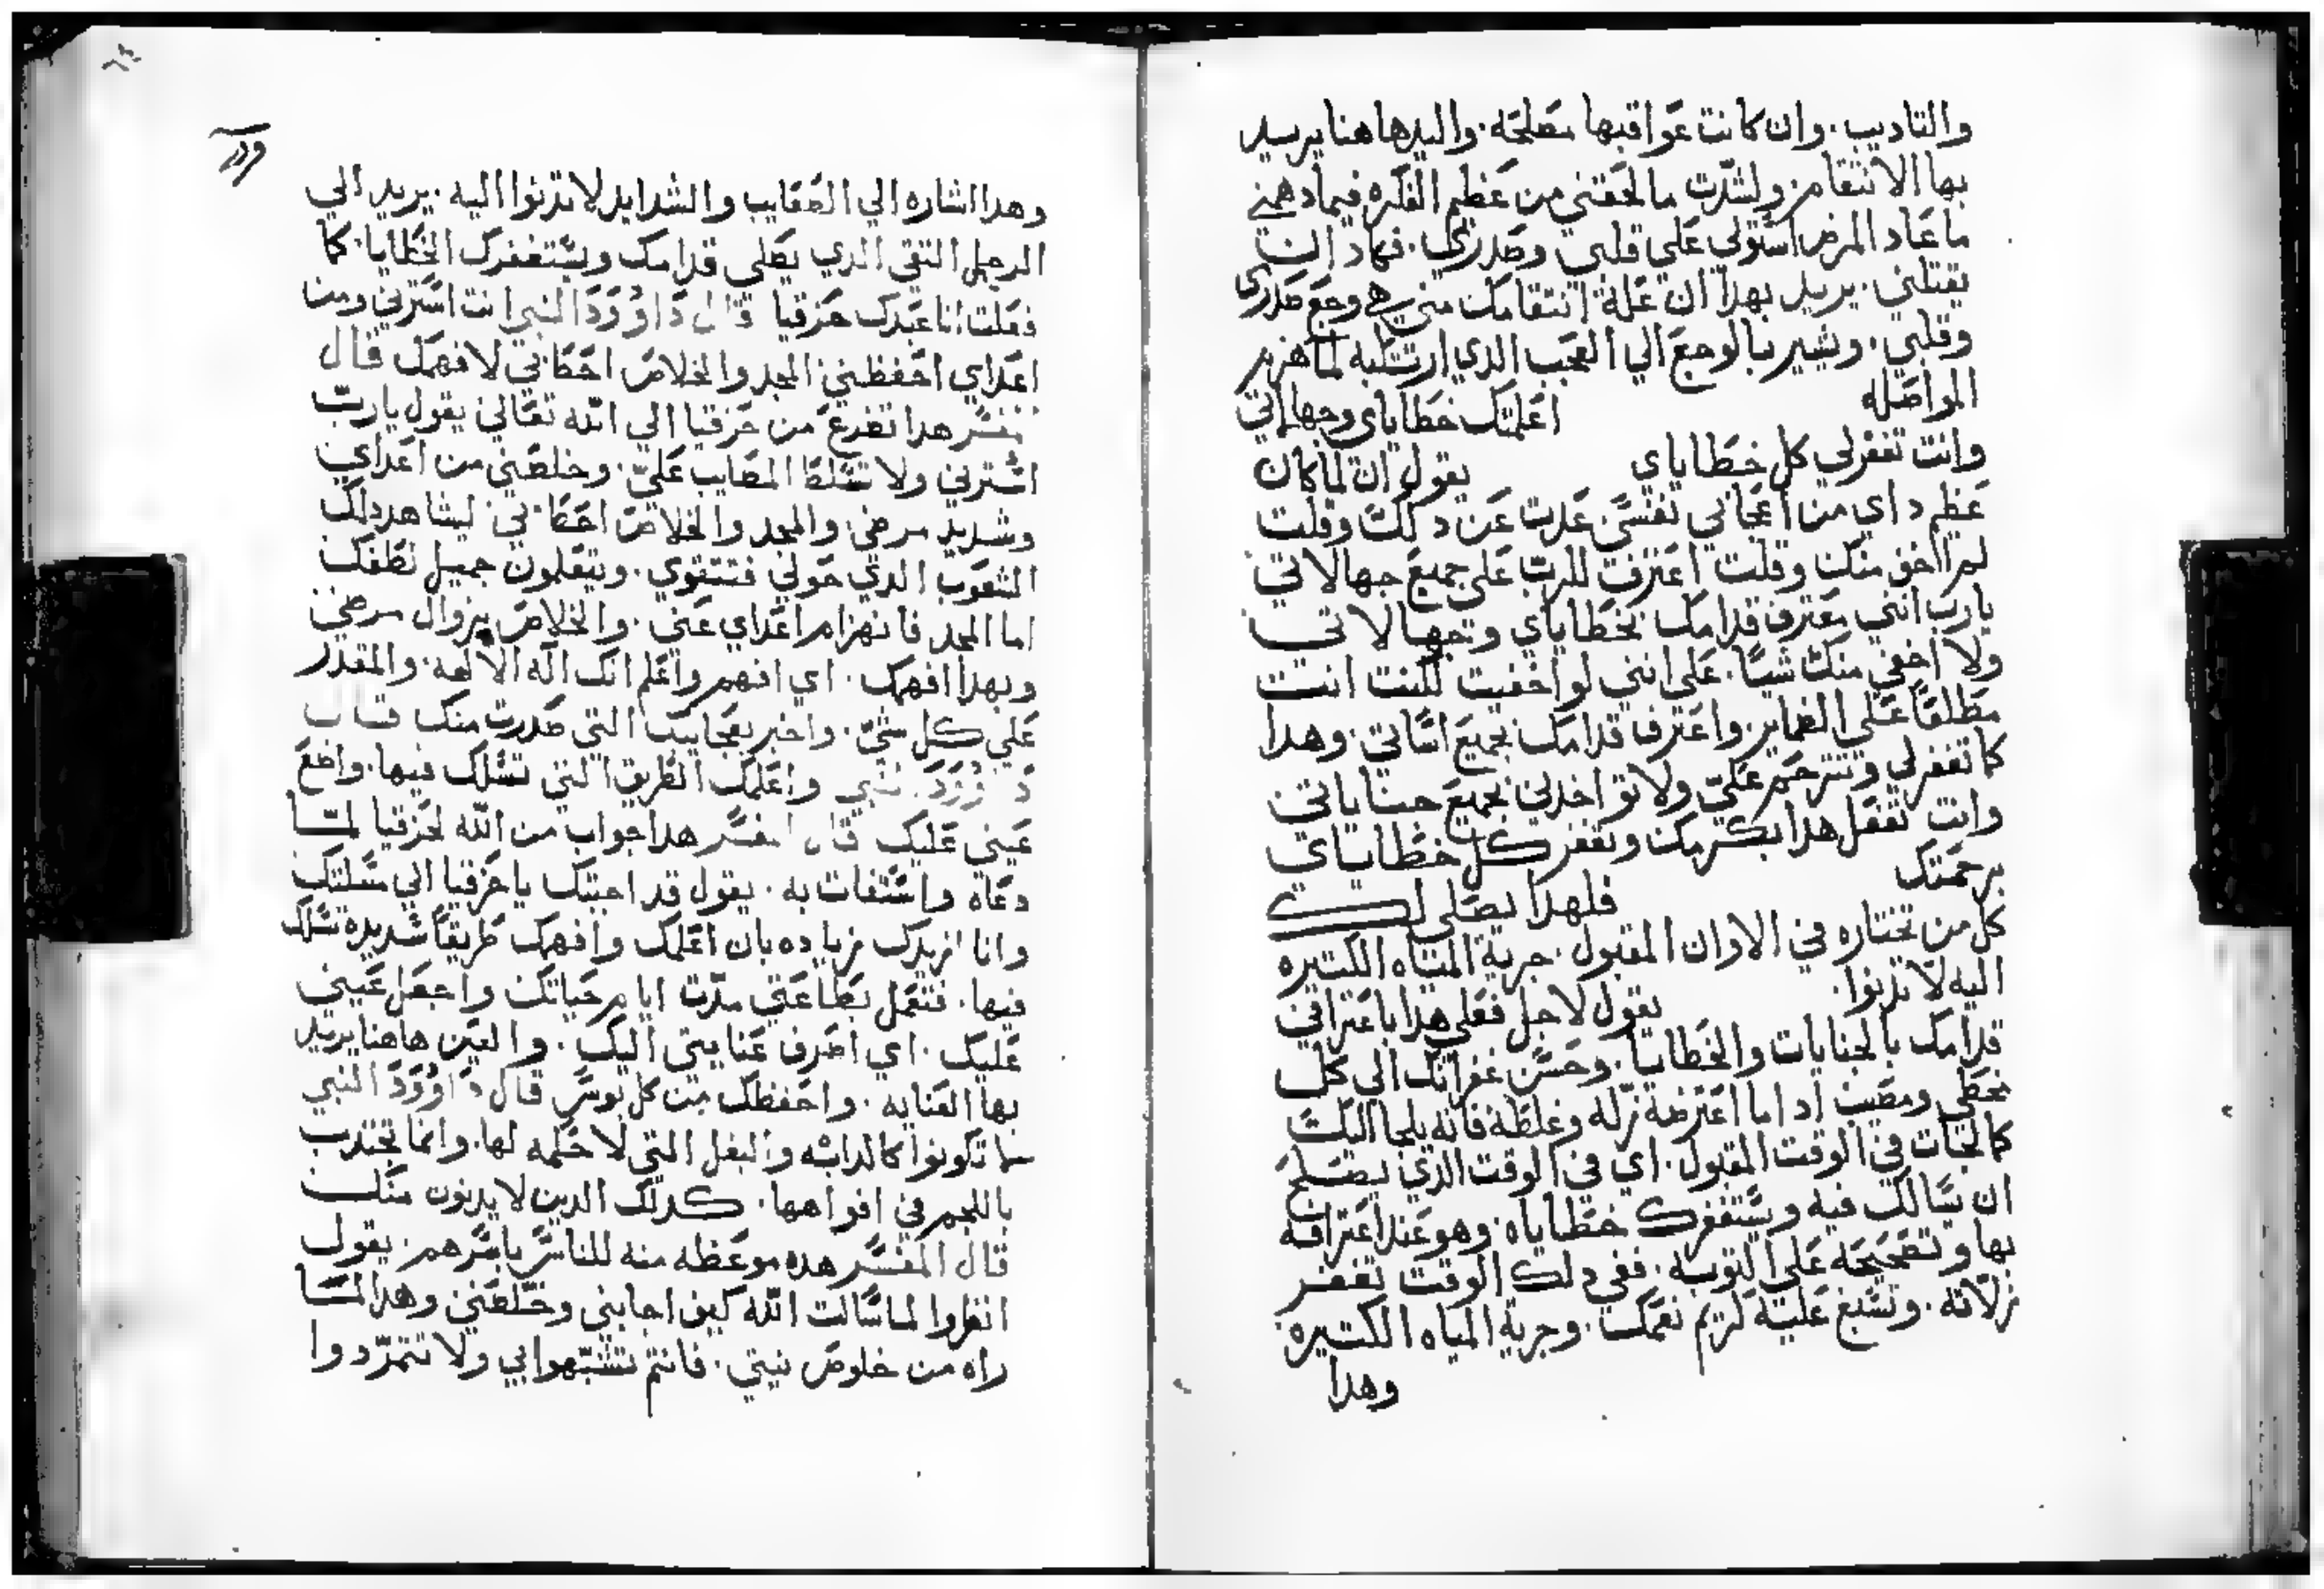 والتاديب. وان كانت عواقبها مصلحه. واليدها هنا يريد
بها الانتقام ولشدت ما لحقني من عظم الفكره فيما دهمني
ما عاد المرض استولي علي قلبي وصدري. فهاد ان
يقتلني. يريد بهدا ان علة انتقامك مني هي وجع صدري
وقلبي. ويشير بالوجع الي العجب الدي ارتكبه لما هزم
المواصله اعلمك خطاياي وجهالتي
وانت تغفر لي كل خطاياي يقول ان لما كان
عظم داي من اعجابي بنفسي عدت عن دلك وقلت
لم اخف منك وقلت اعترف للرب علي جميع جهالاتي
يارب انني معترف قدامك بخطاياي وجهالاتي
ولا اخفي منك شيا. علي انني لو اخفيت لكنت انت
مطلعا علي الضماير. واعترف قدامك بجميع اساتي. وهدا
كا تغفر لي وتترحم علي ولا تواخدني بجميع جناياتي
وانت تفعل هدا بكرمك وتغفر كل خطاياي
برحمتك فلهدا يصلي لك
كل من تختاره في الاوان المقبول. جرية المياه الكتيره
اليه لا تدنوا. يقول لاجل فعلي هدا باعترافي
قدامك بالجنايات والخطايا. وحسن غفرانك الي كل
مخطي ومصيب اد اما اعترضة زله وغلطه فانه يلجا اليك
كالجات في الوقت المقبول. اي في الوقت الدي يصلح
ان يسالك فيه ويستغفرك خطاياه. وهو عند اعترافه
بها وتصحيحه علي التوبه. ففي دلك الوقت تغفر
زلاته. وتسبغ عليه كريم نعمك. وجرية المياه الكتيره
وهدا
وهدا اشاره الي المصايب والشدايد لا تدنوا اليه. يريد الي
الرجل التقي الدي يصلي قدامك ويستغفرك الخطايا. كا
فعلت انا عبدك حزقيا قال داوود النبي انت استرني ومن
اعداي احفظني المجد والخلاص احطا بي لافهمك قال
المفسر هدا تضرع من حزقيا الي الله تعالي يقول يارب
استرني ولا تسلط المصايب علي. وخلصني من اعداي
وشديد مرضي والمجد والخلاص احطا بي ليشاهد دلك
الشعوب الدي حولي فتتقوي. ويتعلمون جميل لطفك
اما المجد فانهزام اعداي عني. والخلاص بزوال مرضي
وبهدا افهمك. اي افهم واعلم انك اله الالهه. والمقتدر
علي كل شي. واخبر بعجايبك التي صدرت منك قال
داوود النبي واعلمك الطريق التي تسلك فيها. واضع
عيني عليك قال المفسر هدا جواب من الله لحزقيا لما
دعاه واستغات به. يقول قد اجبتك يا حزقيا الي مسلتك
وانا ازيدك زياده بان اعلمك وافهمك طريقا شديدة تسلك
فيها. فتعمل بطاعتي مدت ايام حياتك واجعل عيني
عليك. اي اصرف عنايتي اليك. والعين هاهنا يريد
بها العنايه. واحفظك من كل بوس قال داوود النبي
لا تكونوا كالدابه والبغل التي لا حكمه لها. وانما تجتدب
باللجم في افواهها. كدلك الدين لا يدنون منك
قال المفسر هده موعظه منه للناس باسرهم. يقول
انظروا لما سالت الله كيف اجابني وخلصني وهدا لما
راه من خلوص نيتي. فانتم تشبهوا بي ولا تتمردوا